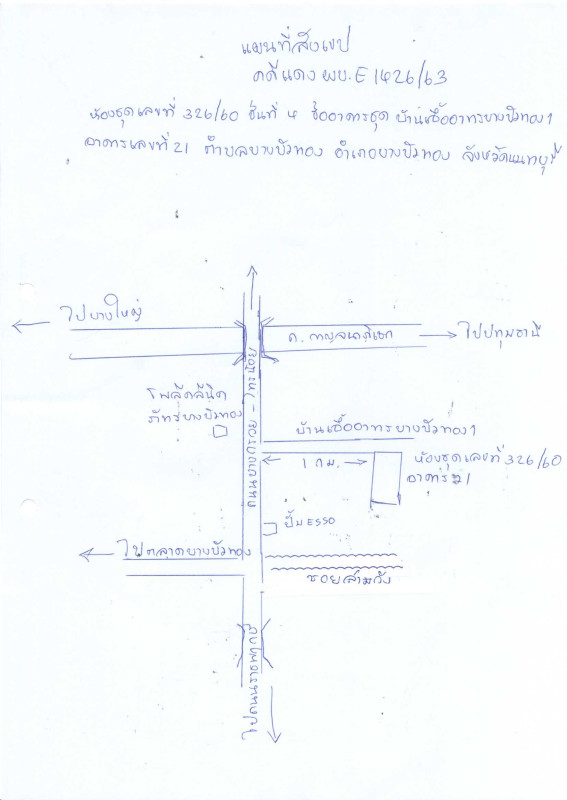 แผนที่สังเขป
คดีแดง ผบ.E1426/63
ห้องชุดเลขที่ 326/60 ชั้นที่ 4 ชื่ออาคารชุด บ้านเอื้ออาทรบางบัวทอง 1
อาคารเลขที่ 21 ตำบลบางบัวทอง อำเภอบางบัวทอง จังหวัดนนทบุรี
ไปบางใหญ่
ถ. กาญจนาภิเษก
ไปปทุมธานี
ถนนบางกรวย - ไทรน้อย
โพลีคลินิค
บางบัวทอง
บ้านเอื้ออาทรบางบัวทอง 1
1 กม.
ห้องชุดเลขที่ 326/60
อาคาร 21
ปั๊ม ESSO
ไปตลาดบางบัวทอง
ซอยสามวัง
ไปถนนราชพฤกษ์